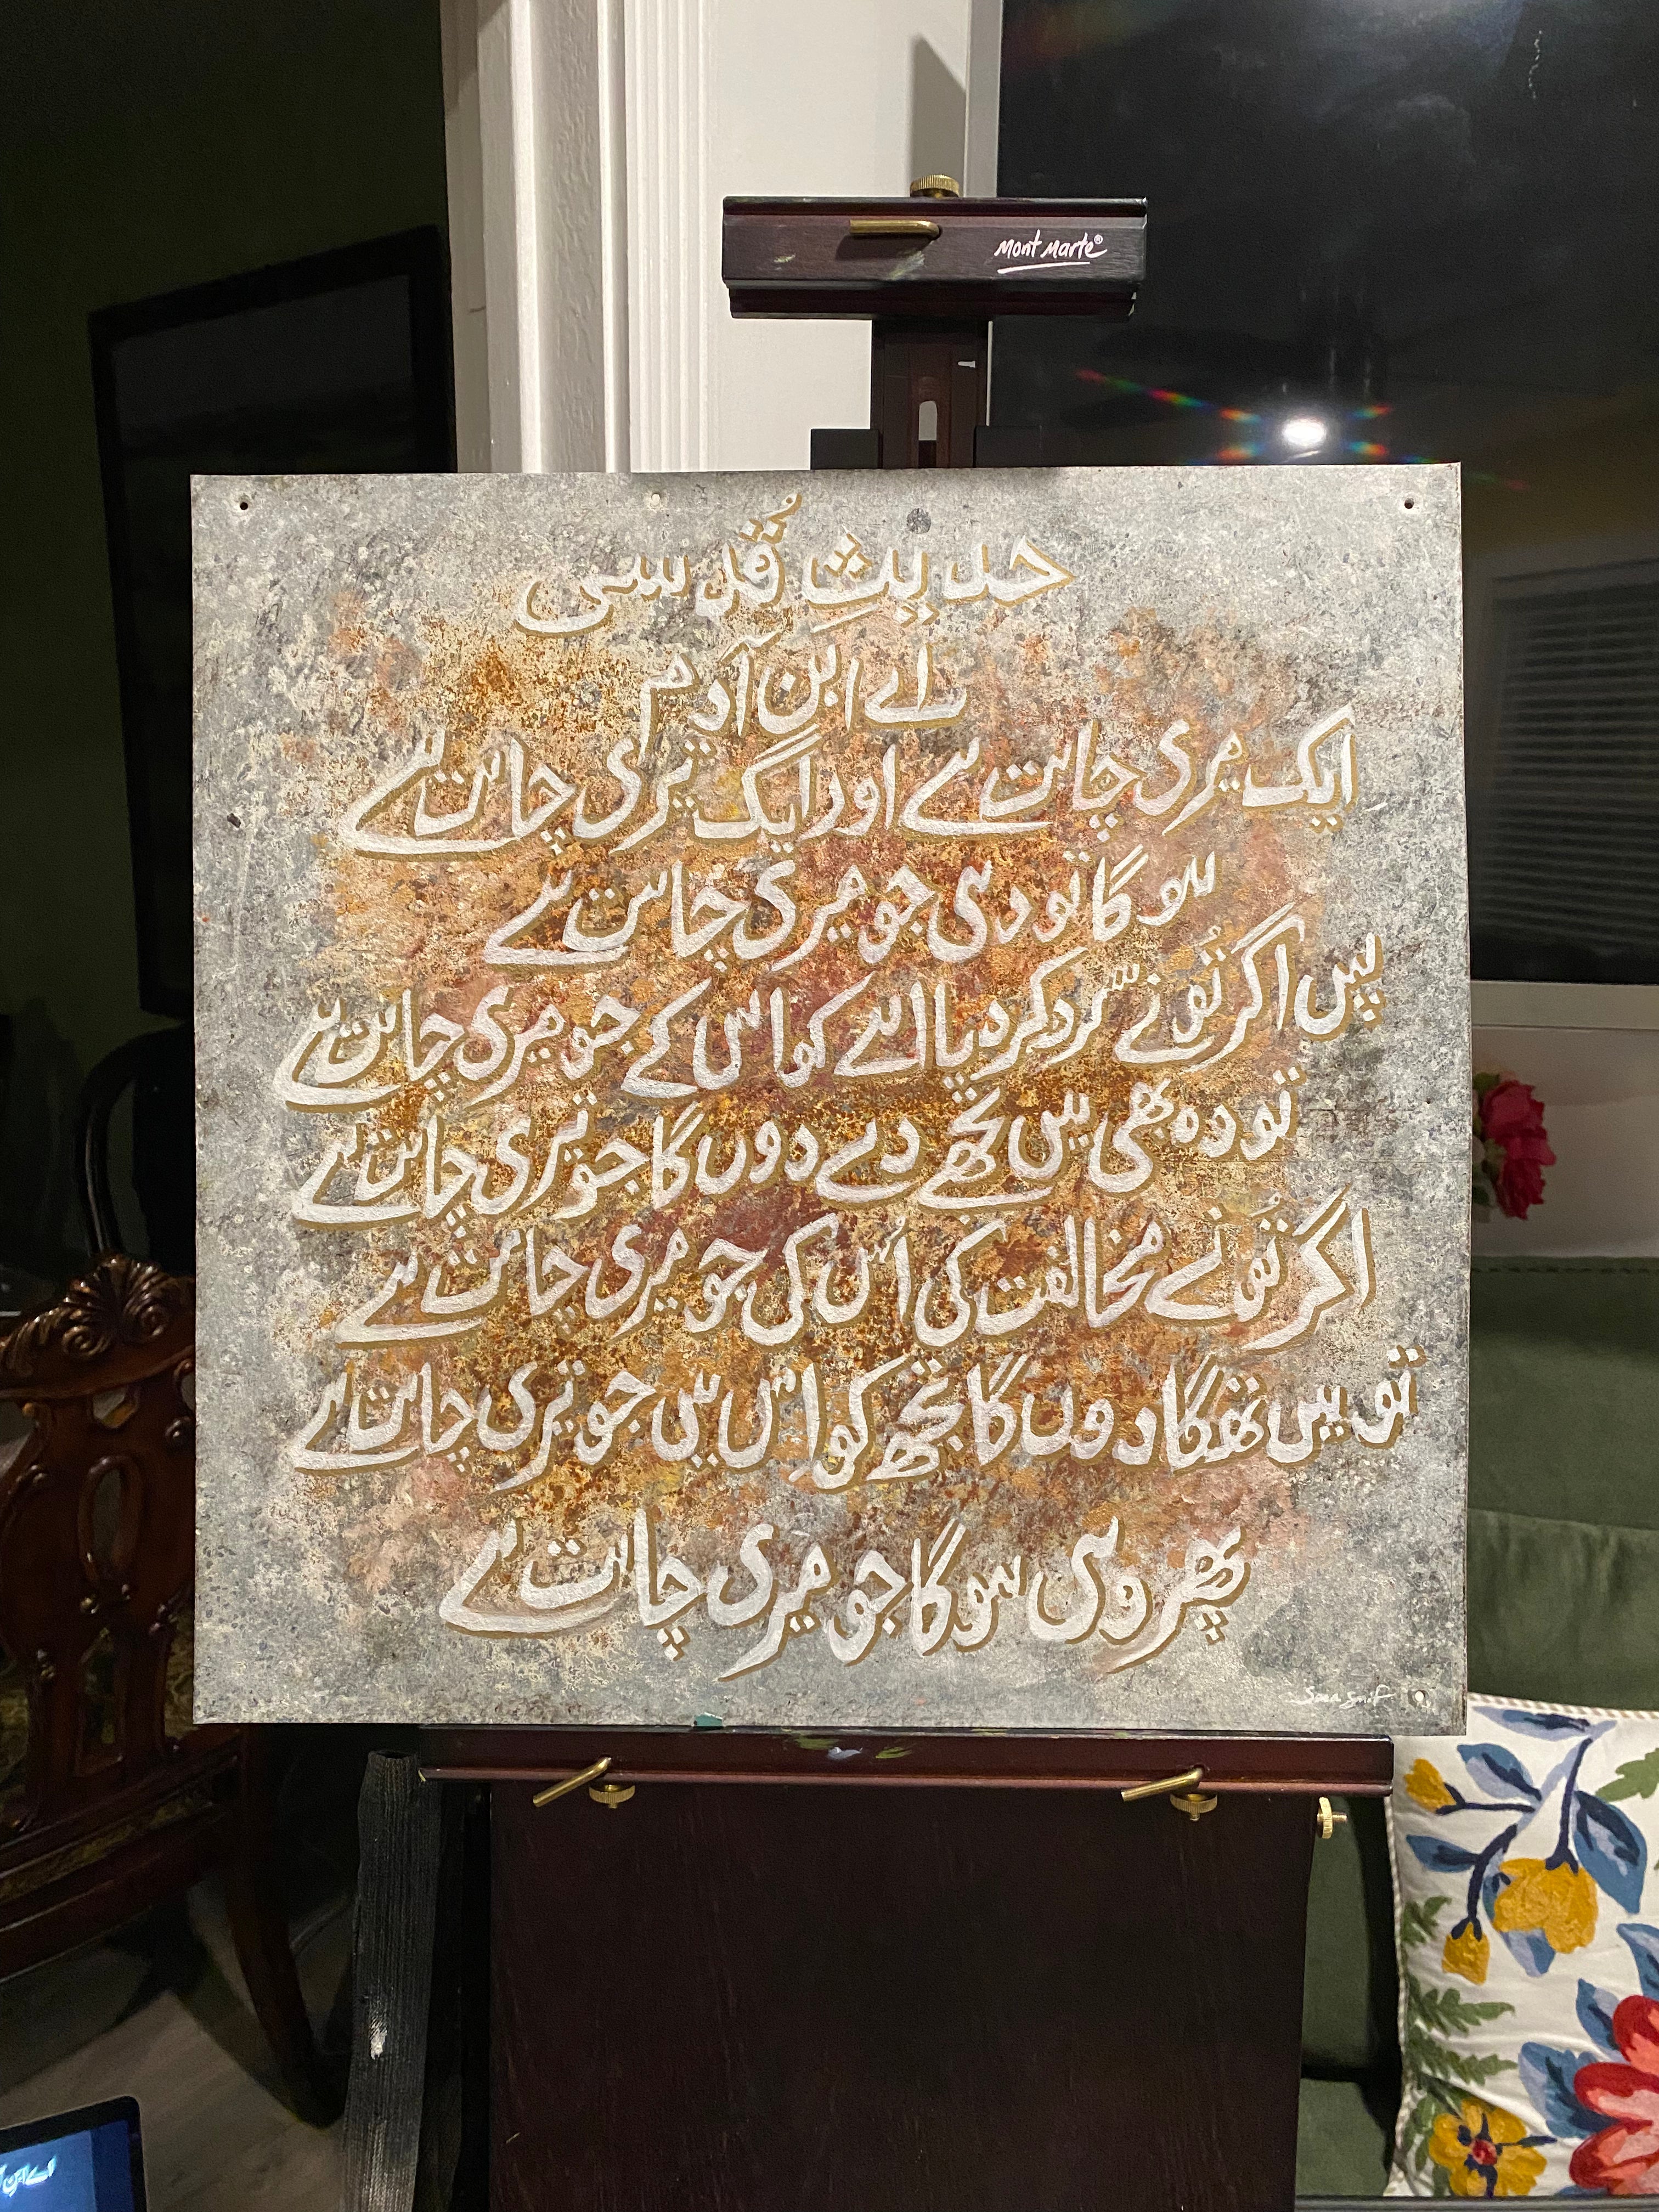 Mont Marte®
حدیثِ قُدسی
اے ابن آدم
ایک میری چاہت ہے اور ایک تیری چاہت ہے
ہوگا تو وہی جو میری چاہت ہے
پس اگر تُو نے سپرد کر دیا اپنے کو اس کے جو میری چاہت ہے
تو وہ بھی میں تجھے دے دوں گا جو تیری چاہت ہے
اگر تُو نے مخالفت کی اُس کی جو میری چاہت ہے
تو میں تھکا دوں گا تجھ کو اِس میں جو تیری چاہت ہے
پھر وہی ہوگا جو میری چاہت ہے